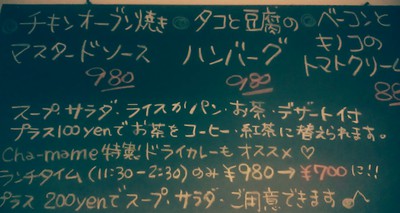 チキンオーブン焼き
マスタードソース
980
タコと豆腐の
ハンバーグ
980
ベーコンと
キノコの
トマトクリーム
88
スープ・サラダ・ライスかパン・お茶・デザート付
プラス100yenでお茶をコーヒー・紅茶に替えられます。
Cha-mame特製ドライカレーもオススメ♡
ランチタイム(11:30-2:30)のみ¥980→¥700に!!
プラス200yenでスープ・サラダ・ご用意できます。